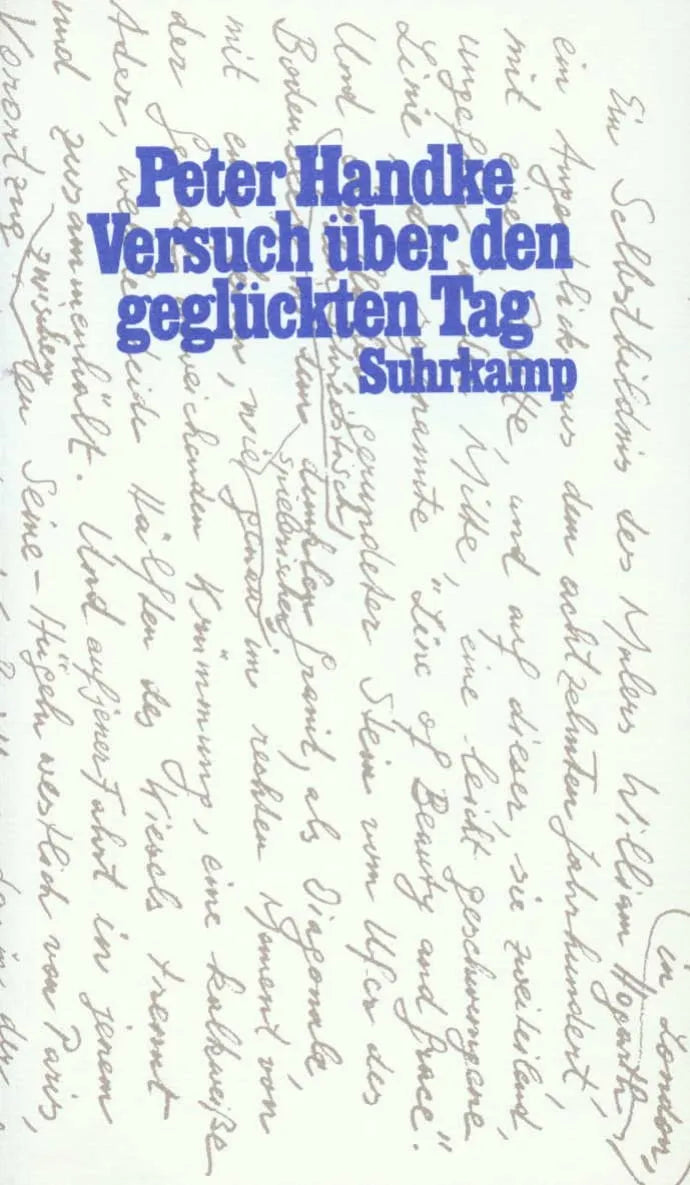 Peter Handke
Versuch über den
geglückten Tag
Suhrkamp
in London,
Ein Selbstbildnis des Malers William Hogarth,
ein Augenblick aus dem achtzehnten Jahrhundert,
mit einer Palette, und auf dieser, sie zweiteilend,
Mitte, eine leicht geschwungene
Linie sogenannte „Line of Beauty and Grace“.
Und gerundeter Stein vom Ufer des
dunklen Granit, als Diagonale,
spielerischen
mit wie genau im rechten Moment von
der abweichenden Krümmung, eine kalkweiße
Ader, welche beide Hälften des Kiesels trennt
und zusammenhält. Und auf jener Fahrt in jenem
Vorortzug zwischen den Seine-Hügeln westlich von Paris,